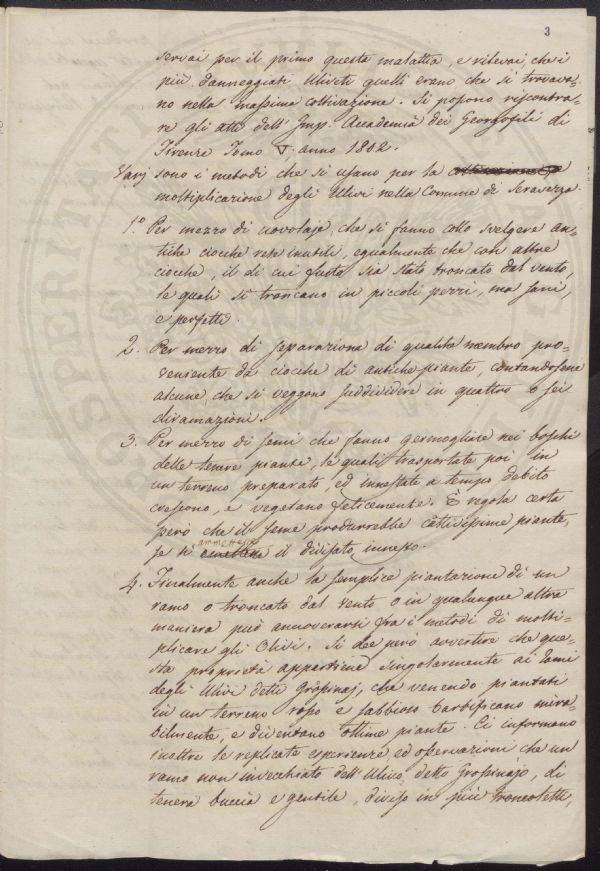 3
servai per il primo questa malattia, e rilevai, che i
più danneggiati Uliveti quelli erano che si trovava=
no nella massima coltivazione. Si possono riscontra=
re gli atti dell' Imp. Accademia dei Georgofili di
Firenze Tomo V, anno 1802.
Varj sono i metodi che si usano per la
moltiplicazione degli Ulivi nella Comune di Seravezza.
1.° Per mezzo di uovolaje, che si fanno collo svelgere an=
tiche ciocche rese inutili, egualmente che con altre
ciocche, il di cui fusto sia stato troncato dal vento,
le quali si troncano in piccoli pezzi, ma sani,
e perfetti.
2. Per mezzo di separazione di qualche membro pro=
veniente da ciocche di antiche piante, contandosene
alcune, che si veggono suddividere in quattro o sei
diramazioni.
3. Per mezzo di semi che fanno germogliare nei boschi
delle tenere piante, le quali trasportate poi in
un terreno preparato, ed innestate a tempo debito
crescono, e vegetano felicemente. È regola certa
però che il seme produrrebbe cattivissime piante,
se si ammettesse il divisato innesto.
4. Finalmente anche la semplice piantazione di un
ramo o troncato dal vento o in qualunque altra
maniera può annoverarsi fra i metodi di molti=
plicare gli Olivi. Si dee però avvertire che que=
sta proprietà appartiene singolarmente ai rami
degli Ulivi detti Grossinaj, che venendo piantati
in un terreno rosso e sabbioso barbificano mira=
bilmente, e diventano ottime piante. Ci informano
inoltre le replicate esperienze, ed osservazioni, che un
ramo non invecchiato dell' Ulivo detto Grossinajo, di
tenera buccia e gentile, diviso in più troncoletti,